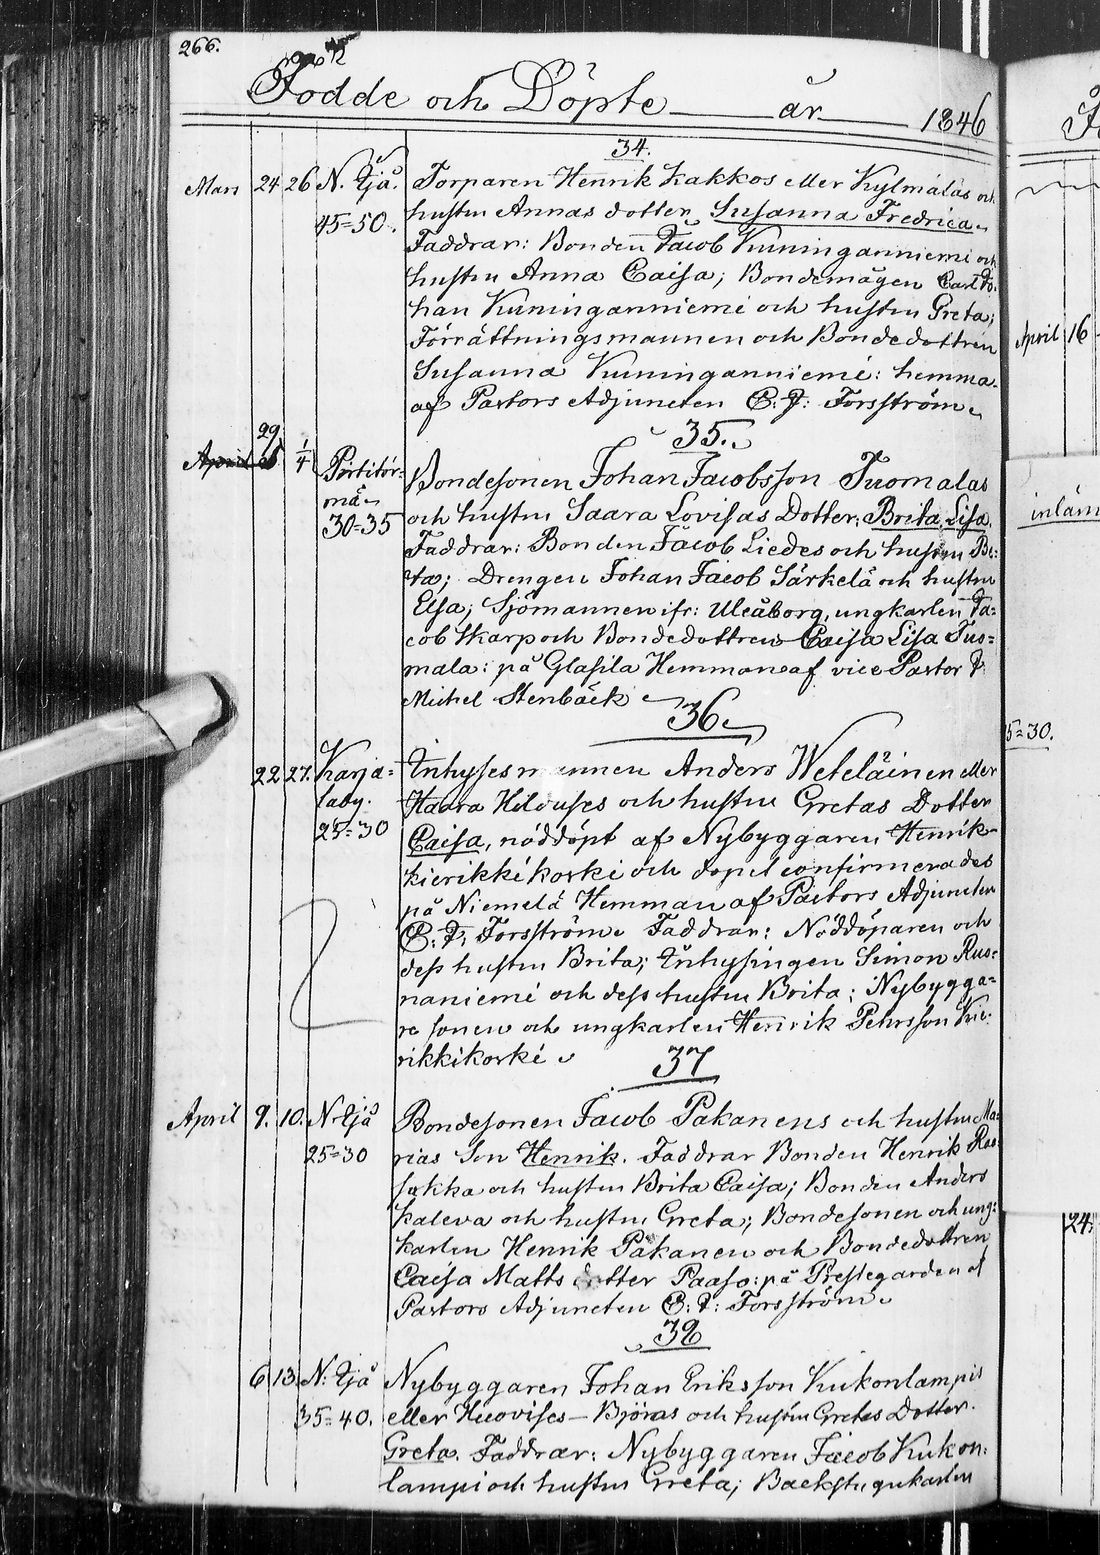 266.
Födde och Döpte år 1846
34.
Mars 24 26 N. Ijå. Torparen Henrik Kakkos eller Kylmälas och
45=50. hustru Annas dotter Susanna Fredrica
Faddrar: Bonden Jacob Kuninganniemi och
hustru Anna Caisa; Bondemågen Carl Jo-
han Kuninganniemi och hustru Greta;
Förrättningsmannen och Bondedottren
Susanna Kuninganniemi: hemma
af Pastors Adjuncten C: J: Forsström
35.
29 1/4 Bondesonen Johan Jacobsson Tuomalas
och hustru Saara Lovisas Dotter: Brita Lisa.
30=35
Faddrar: Bonden Jacob Liedes och hustru Bri-
ta; Drengen Johan Jacob Särkelä och hustru
Elsa; Sjömannen ifr: Uleåborg, ungkarlen Ja=
cob Skarp och Bondedottren Caisa Lisa Tuo=
mala: på Glasila Hemman af vice Pastor J.
Michel Stenbäck
36.
22 27. Karja= Inhysesmannen Anders Weteläinen eller
laby. Haara Hilduses och hustru Gretas Dotter
25=30 Caisa, nöddöpt af Nybyggaren Henrik
Kierikkikoski och dopet confirmerades
på Niemelä Hemman af Pastors Adjuncten
C: J: Forsström Faddrar: Nöddöparen och
dess hustru Brita; Inhysingen Simon Rus=
naniemi och dess hustru Brita; Nybygga=
re sonen och ungkarlen Henrik Pehrsson Kie-
rikkikoski
37
April 9. 10. N. Ijå Bondesonen Jacob Pakanens och hustru Ma-
25=30 rias Son Henrik. Faddrar Bonden Henrik Ras-
sukka och hustru Brita Caisa; Bonden Anders
Kaleva och hustru Greta; Bondesonen och ung=
karlen Henrik Pakanen och Bondedottren
Caisa Matts dotter Paaso: på Prestegarden af
Pastors Adjuncten C: J: Forsström
38
6 13. N: Ijå Nybyggaren Johan Eriksson Kukonlampis
35=40. eller Huovises Björas och hustru Gretas Dotter
Greta. Faddrar: Nybyggaren Jacob Kukon=
lampi och hustru Greta; Backstugukarlen
April 16
inläm
5=30.
24.